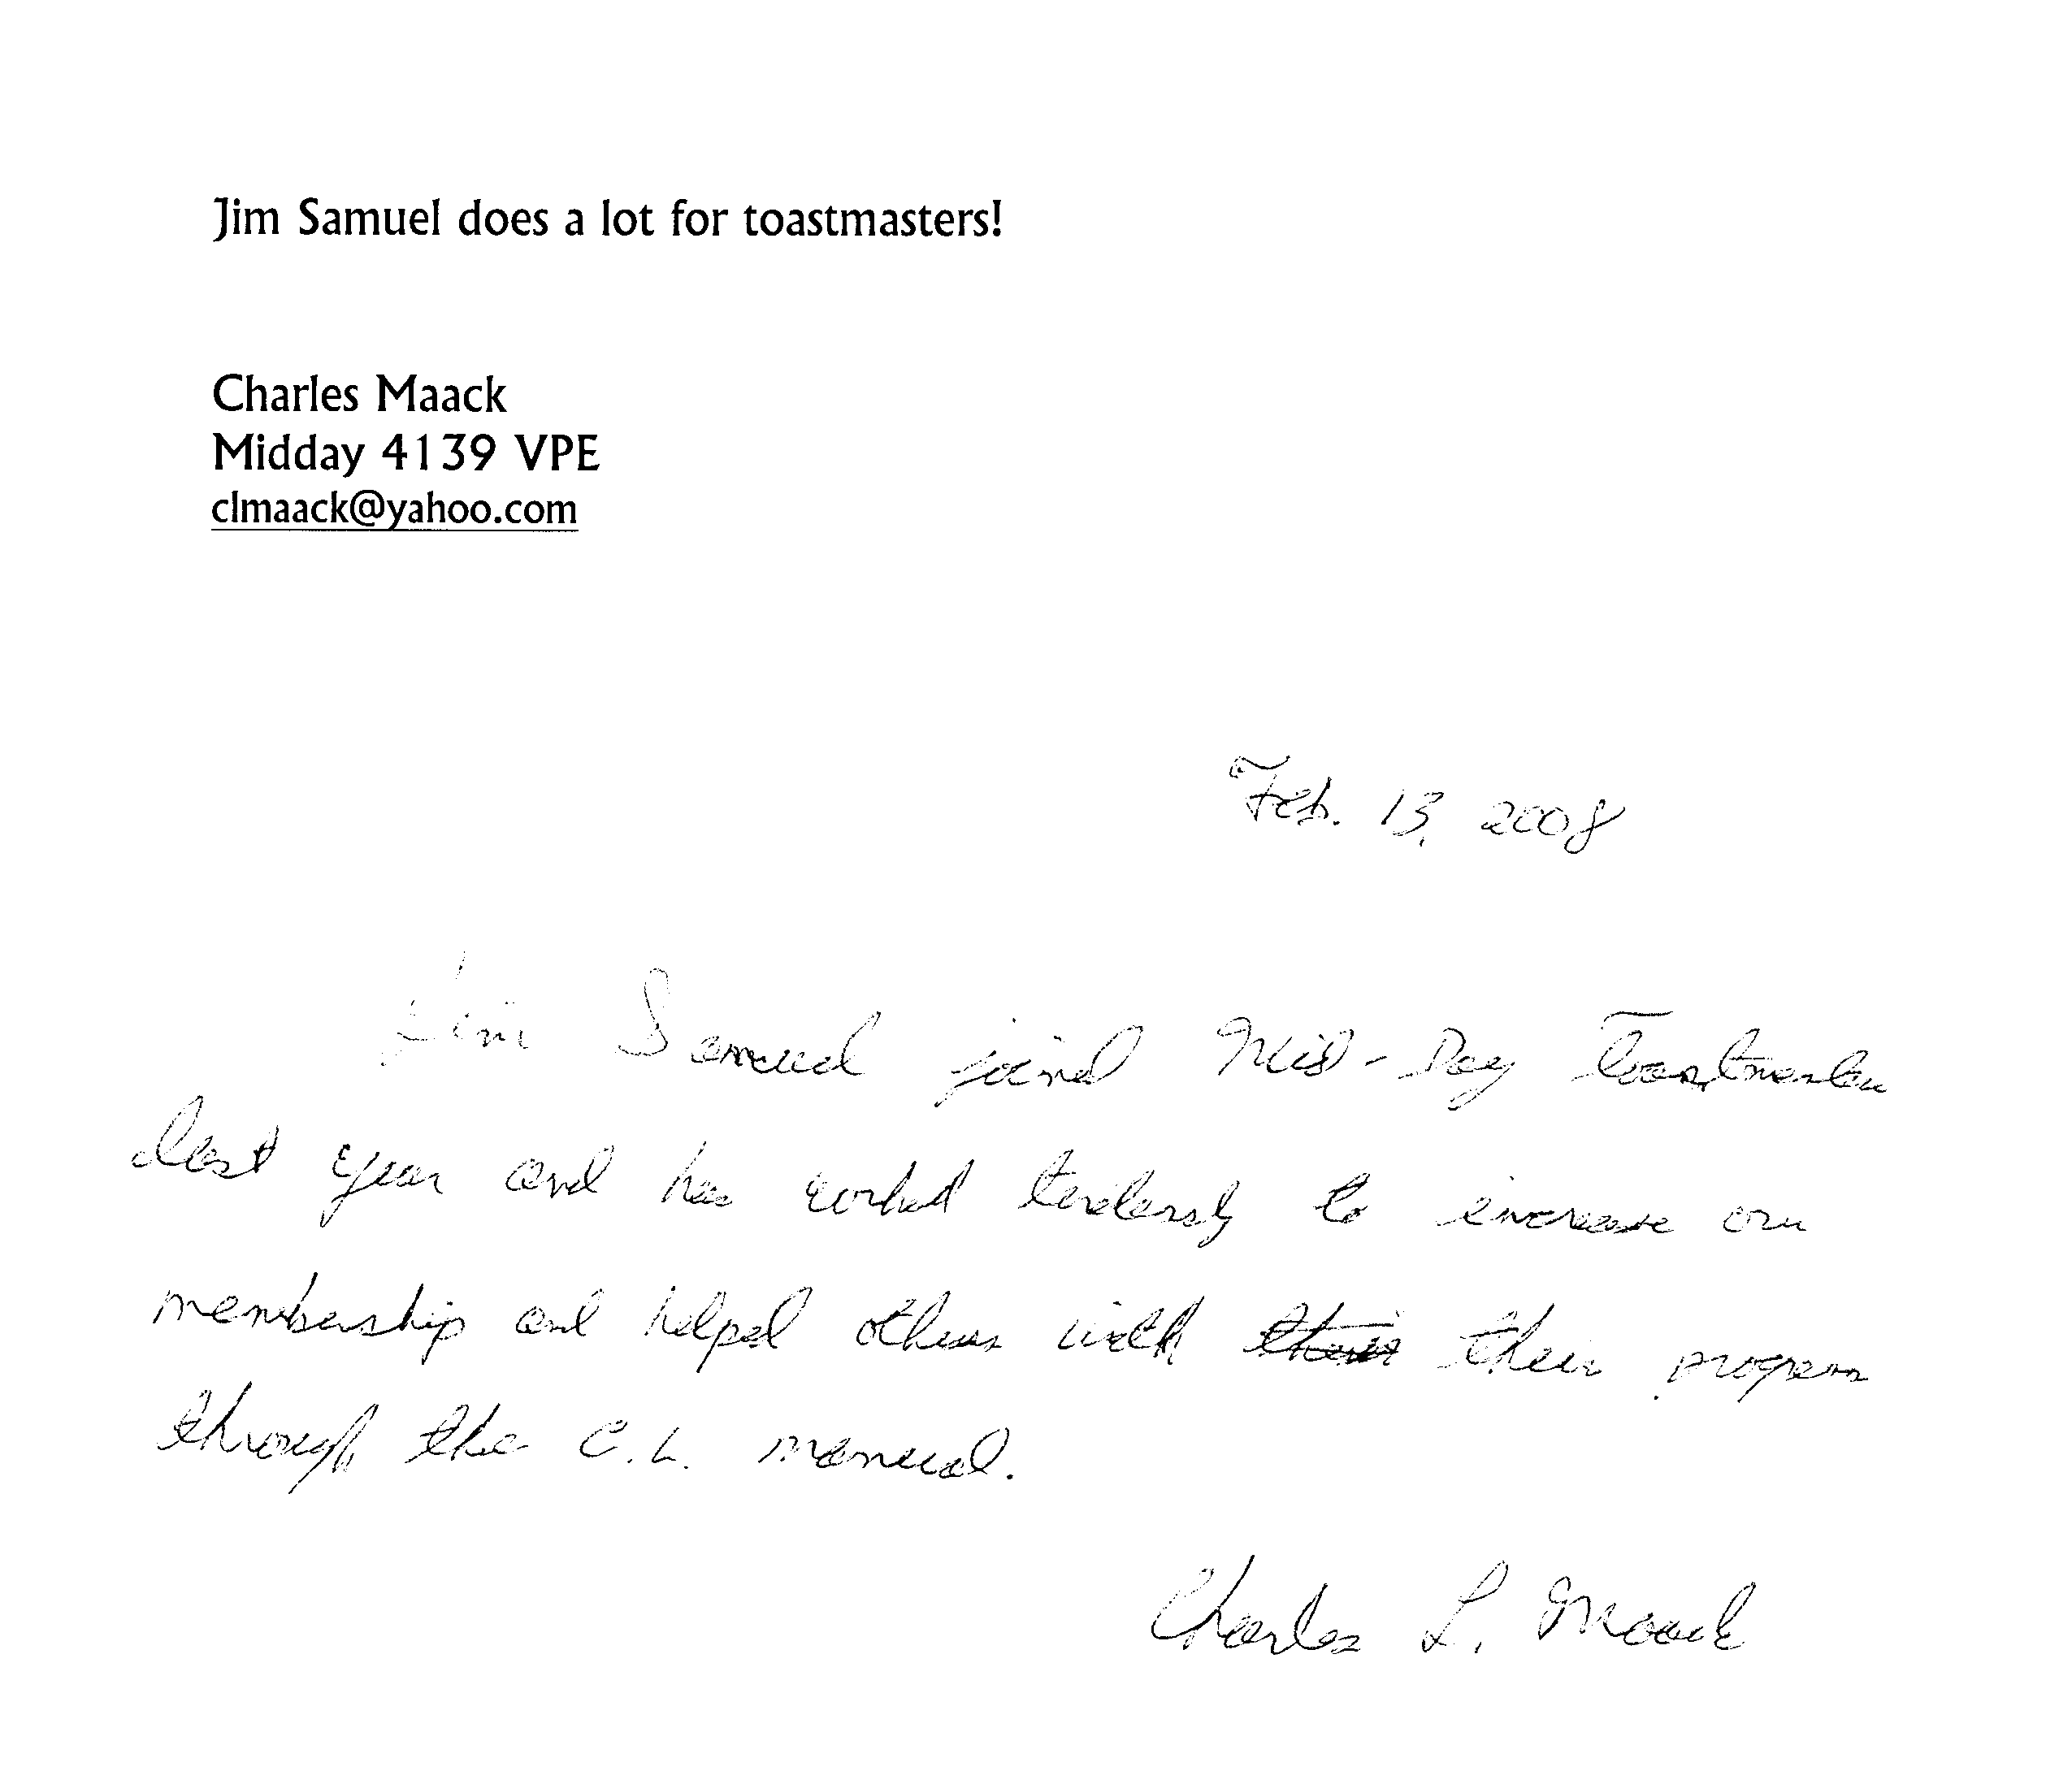 Jim Samuel does a lot for toastmasters!
Charles Maack
Midday 4139 VPE
clmaack@yahoo.com
Feb. 13, 2008
Jim Samuel joined Mid-Day Toastmasters
last year and has worked tirelessly to increase our
membership and helped others with their their progress
through the C.L. manual.
Charles L. Maack